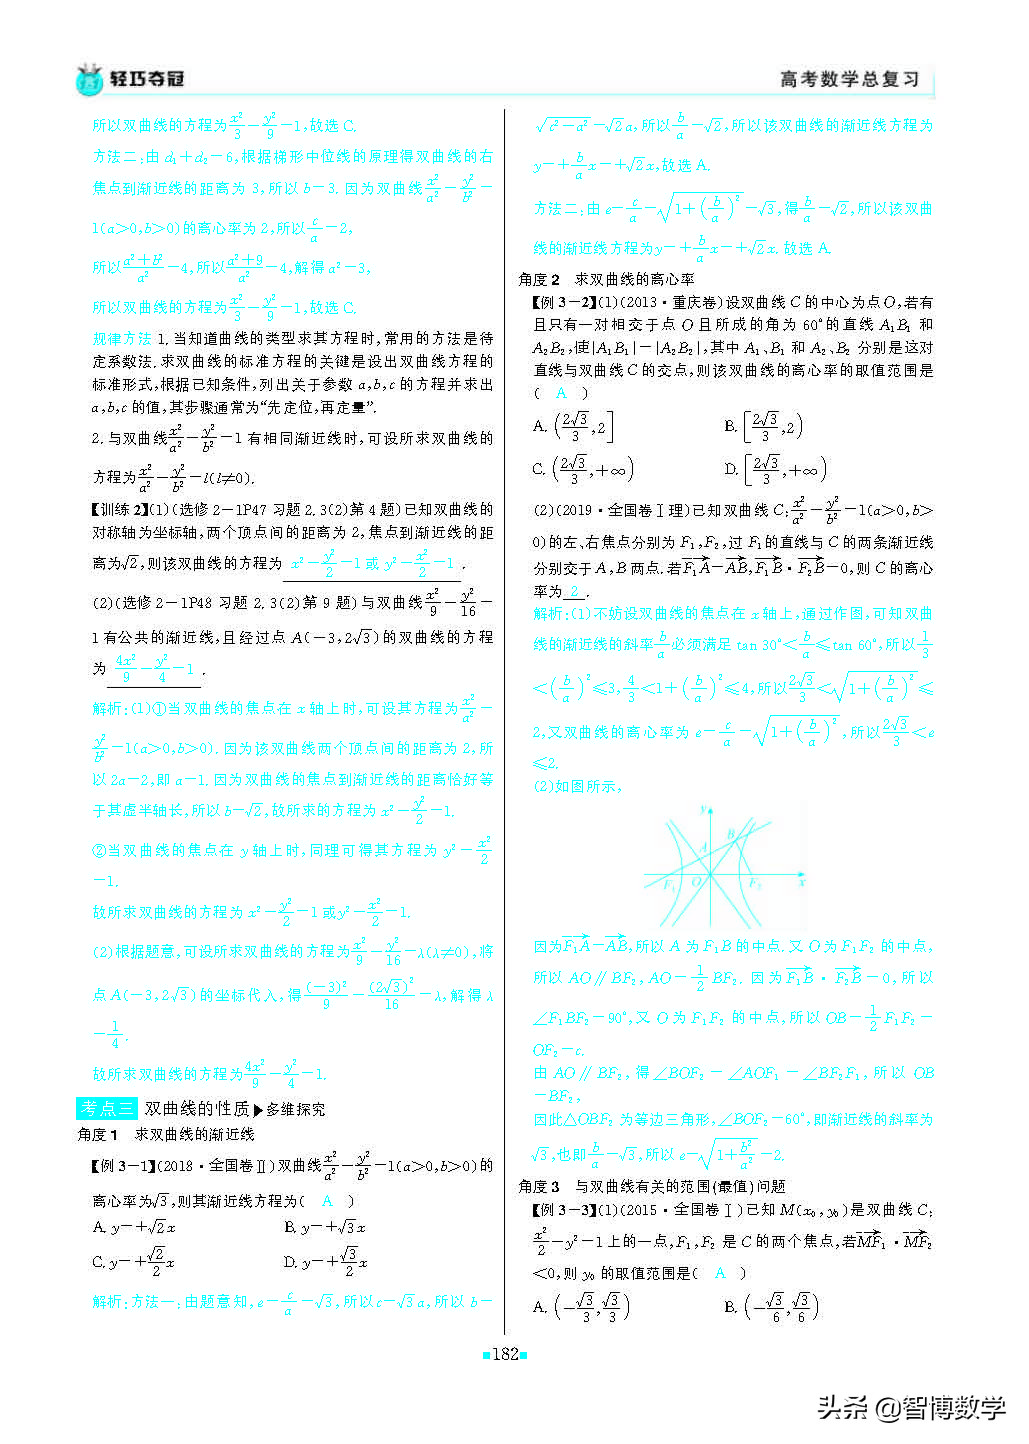 轻巧夺冠
高考数学总复习
所以双曲线的方程为x²/3－y²/9＝1,故选C.
方法二:由 d₁＋d₂＝6,根据梯形中位线的原理得双曲线的右
焦点到渐近线的距离为 3,所以 b＝3. 因为双曲线x²/a²－y²/b²＝
1(a>0,b>0)的离心率为2,所以c/a＝2,
所以(a²＋b²)/a²＝4,所以(a²＋9)/a²＝4,解得 a²＝3,
所以双曲线的方程为x²/3－y²/9＝1,故选C.
规律方法 1. 当知道曲线的类型求其方程时, 常用的方法是待
定系数法. 求双曲线的标准方程的关键是设出双曲线方程的
标准形式,根据已知条件,列出关于参数 a,b,c 的方程并求出
a,b,c 的值,其步骤通常为“先定位,再定量”.
2. 与双曲线x²/a²－y²/b²＝1 有相同渐近线时,可设所求双曲线的
方程为x²/a²－y²/b²＝l(l≠0).
【训练 2】(1)(选修 2－1P47 习题 2. 3(2)第 4 题)已知双曲线的
对称轴为坐标轴,两个顶点间的距离为 2,焦点到渐近线的距
离为√2,则该双曲线的方程为 x²－y²/2＝1或 y²－x²/2＝1 .
(2)(选修 2－1P48 习题 2. 3(2)第 9 题)与双曲线x²/9－y²/16＝
1 有公共的渐近线,且经过点 A(－3,2√3)的双曲线的方程
为 4x²/9－y²/4＝1 .
解析:(1)①当双曲线的焦点在 x 轴上时,可设其方程为x²/a²－
y²/b²＝1(a>0,b>0). 因为该双曲线两个顶点间的距离为 2,所
以 2a＝2,即 a＝1. 因为双曲线的焦点到渐近线的距离恰好等
于其虚半轴长,所以 b＝√2,故所求的方程为 x²－y²/2＝1.
②当双曲线的焦点在 y 轴上时,同理可得其方程为 y²－x²/2
＝1.
故所求双曲线的方程为 x²－y²/2＝1或y²－x²/2＝1.
(2)根据题意,可设所求双曲线的方程为x²/9－y²/16＝λ(λ≠0),将
点 A(－3,2√3)的坐标代入,得(－3)²/9－(2√3)²/16＝λ,解得 λ
＝1/4.
故所求双曲线的方程为4x²/9－y²/4＝1.
考点三 双曲线的性质▶多维探究
角度 1 求双曲线的渐近线
【例 3－1】(2018·全国卷Ⅱ)双曲线x²/a²－y²/b²＝1(a>0,b>0)的
离心率为√3,则其渐近线方程为( A )
A. y＝±√2x B. y＝±√3x
C. y＝±√2/2x D. y＝±√3/2x
解析:方法一:由题意知,e＝c/a＝√3,所以c＝√3a,所以 b＝
√(c²－a²)＝√2a,所以b/a＝√2,所以该双曲线的渐近线方程为
y＝±b/a x＝±√2x,故选 A.
方法二:由 e＝c/a＝√(1＋(b/a)²)＝√3,得b/a＝√2,所以该双曲
线的渐近线方程为y＝±b/a x＝±√2x. 故选 A.
角度 2 求双曲线的离心率
【例 3－2】(1)(2013·重庆卷)设双曲线 C 的中心为点 O,若有
且只有一对相交于点 O 且所成的角为 60°的直线 A₁B₁ 和
A₂B₂,使|A₁B₁|＝|A₂B₂|,其中 A₁、B₁ 和 A₂、B₂ 分别是这对
直线与双曲线 C 的交点,则该双曲线的离心率的取值范围是
( A )
A. (2√3/3,2] B. [2√3/3,2)
C. (2√3/3,＋∞) D. [2√3/3,＋∞)
(2)(2019·全国卷Ⅰ理)已知双曲线 C:x²/a²－y²/b²＝1(a>0,b>
0)的左、右焦点分别为 F₁,F₂,过 F₁的直线与 C 的两条渐近线
分别交于 A,B 两点. 若→F₁A＝→AB,→F₁B·→F₂B＝0,则 C 的离心
率为 2 .
解析:(1)不妨设双曲线的焦点在 x 轴上,通过作图,可知双曲
线的渐近线的斜率b/a必须满足 tan 30°<b/a≤tan 60°,所以1/3
<(b/a)²≤3,4/3<1＋(b/a)²≤4,所以2√3/3<√(1＋(b/a)²)≤
2,又双曲线的离心率为 e＝c/a＝√(1＋(b/a)²),所以2√3/3<e
≤2.
(2)如图所示,
y
A
B
F₁
O
F₂
x
因为→F₁A＝→AB,所以 A 为 F₁B 的中点. 又 O 为 F₁F₂ 的中点,
所以 AO∥BF₂,AO＝1/2BF₂. 因为→F₁B·→F₂B＝0,所以
∠F₁BF₂＝90°,又 O 为 F₁F₂ 的中点,所以 OB＝1/2F₁F₂＝
OF₂＝c.
由 AO∥BF₂,得∠BOF₂＝∠AOF₁＝∠BF₂F₁,所以 OB
＝BF₂,
因此△OBF₂ 为等边三角形,∠BOF₂＝60°,即渐近线的斜率为
√3,也即b/a＝√3,所以 e＝√(1＋b²/a²)＝2.
角度 3 与双曲线有关的范围(最值)问题
【例 3－3】(1)(2015·全国卷Ⅰ)已知 M(x₀,y₀)是双曲线 C:
x²/2－y²＝1上的一点,F₁,F₂ 是 C 的两个焦点,若→MF₁·→MF₂
<0,则 y₀ 的取值范围是( A )
A. (－√3/3,√3/3) B. (－√3/6,√3/6)
182
头条 @智博数学